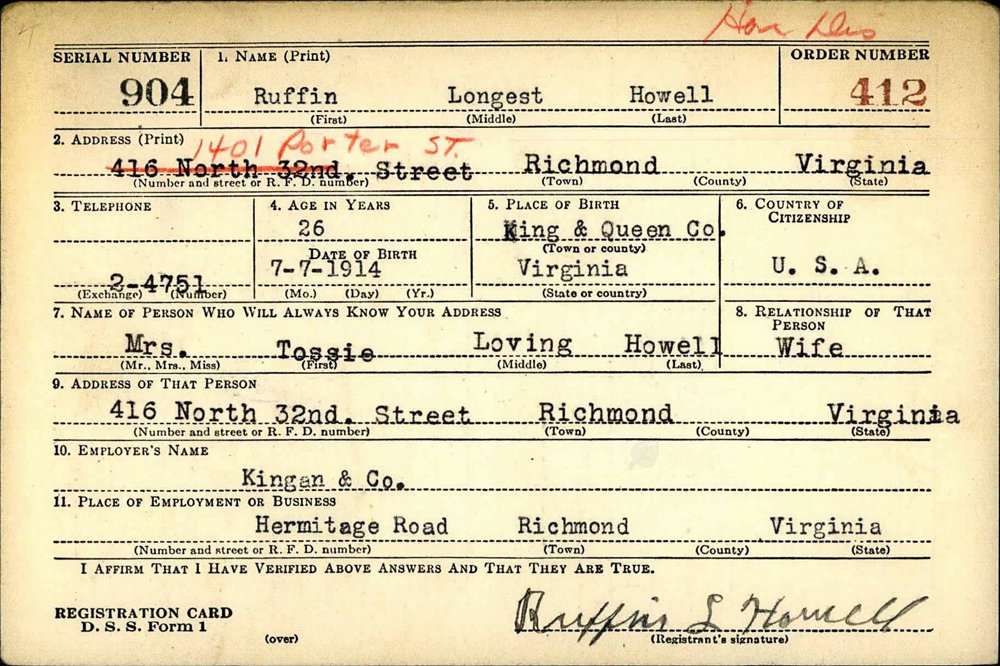 Hon Dis
SERIAL NUMBER 1. NAME (Print) ORDER NUMBER
904 Ruffin Longest Howell 412
(First) (Middle) (Last)
2. ADDRESS (Print) 1401 Porter ST.
416 North 32nd. Street Richmond Virginia
(Number and street or R. F. D. number) (Town) (County) (State)
3. TELEPHONE 4. AGE IN YEARS 5. PLACE OF BIRTH 6. COUNTRY OF CITIZENSHIP
26 King & Queen Co.
DATE OF BIRTH (Town or county)
2-4751 7-7-1914 Virginia U. S. A.
(Exchange) (Number) (Mo.) (Day) (Yr.) (State or country)
7. NAME OF PERSON WHO WILL ALWAYS KNOW YOUR ADDRESS 8. RELATIONSHIP OF THAT PERSON
Mrs. Tossie Loving Howell Wife
(Mr., Mrs., Miss) (First) (Middle) (Last)
9. ADDRESS OF THAT PERSON
416 North 32nd. Street Richmond Virginia
(Number and street or R. F. D. number) (Town) (County) (State)
10. EMPLOYER'S NAME
Kingan & Co.
11. PLACE OF EMPLOYMENT OR BUSINESS
Hermitage Road Richmond Virginia
(Number and street or R. F. D. number) (Town) (County) (State)
I AFFIRM THAT I HAVE VERIFIED ABOVE ANSWERS AND THAT THEY ARE TRUE.
REGISTRATION CARD
D. S. S. Form 1 Ruffin L Howell
(over) (Registrant's signature)